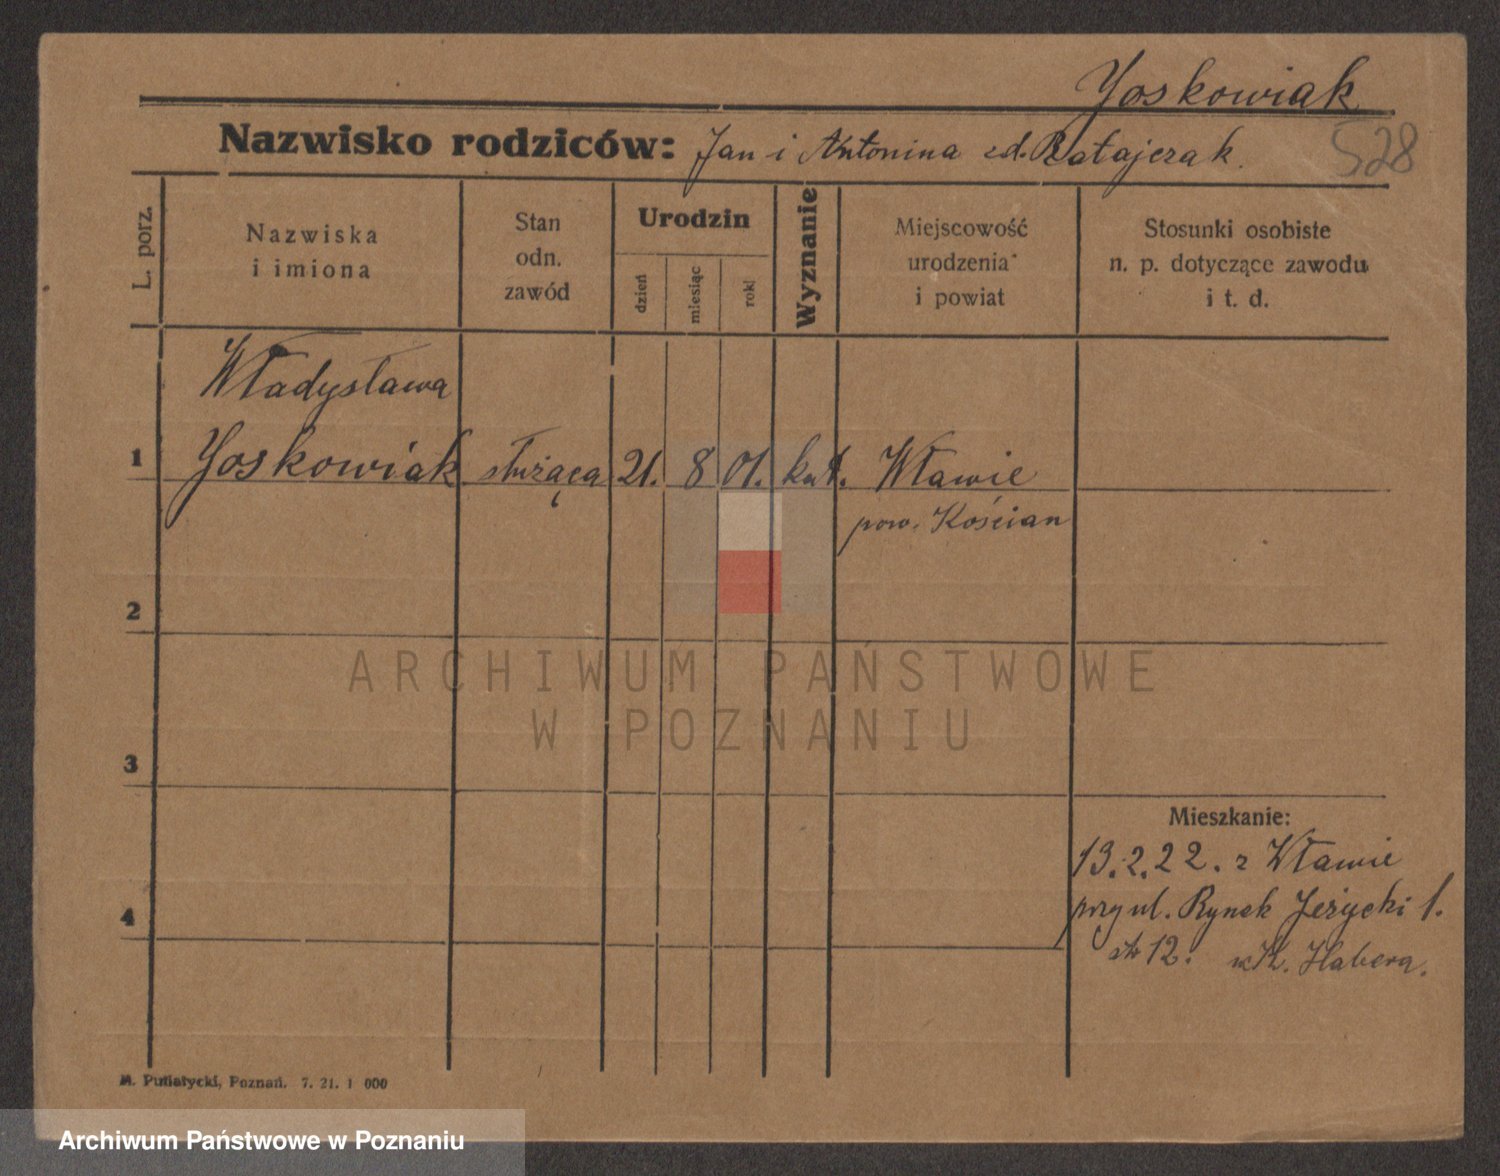 Yoskowiak
Nazwisko rodziców: Jan i Antonina zd. Ratajczak.
528
L. porz.
Nazwiska
i imiona
Stan
odn.
zawód
Urodzin
dzień
miesiąc
rok
Wyznanie
Miejscowość
urodzenia
i powiat
Stosunki osobiste
n. p. dotyczące zawodu
i t. d.
Władysława
1 Yoskowiak służąca 21. 8 01. kat. Wławie
pow. Kościan
2
3
4
ARCHIWUM PAŃSTWOWE
W POZNANIU
Mieszkanie:
13.2.22. z Wławie
przy ul. Rynek Jeżycki 1.
12. Habera.
M. Putiatycki, Poznań. 7. 21. 1 000
Archiwum Państwowe w Poznaniu